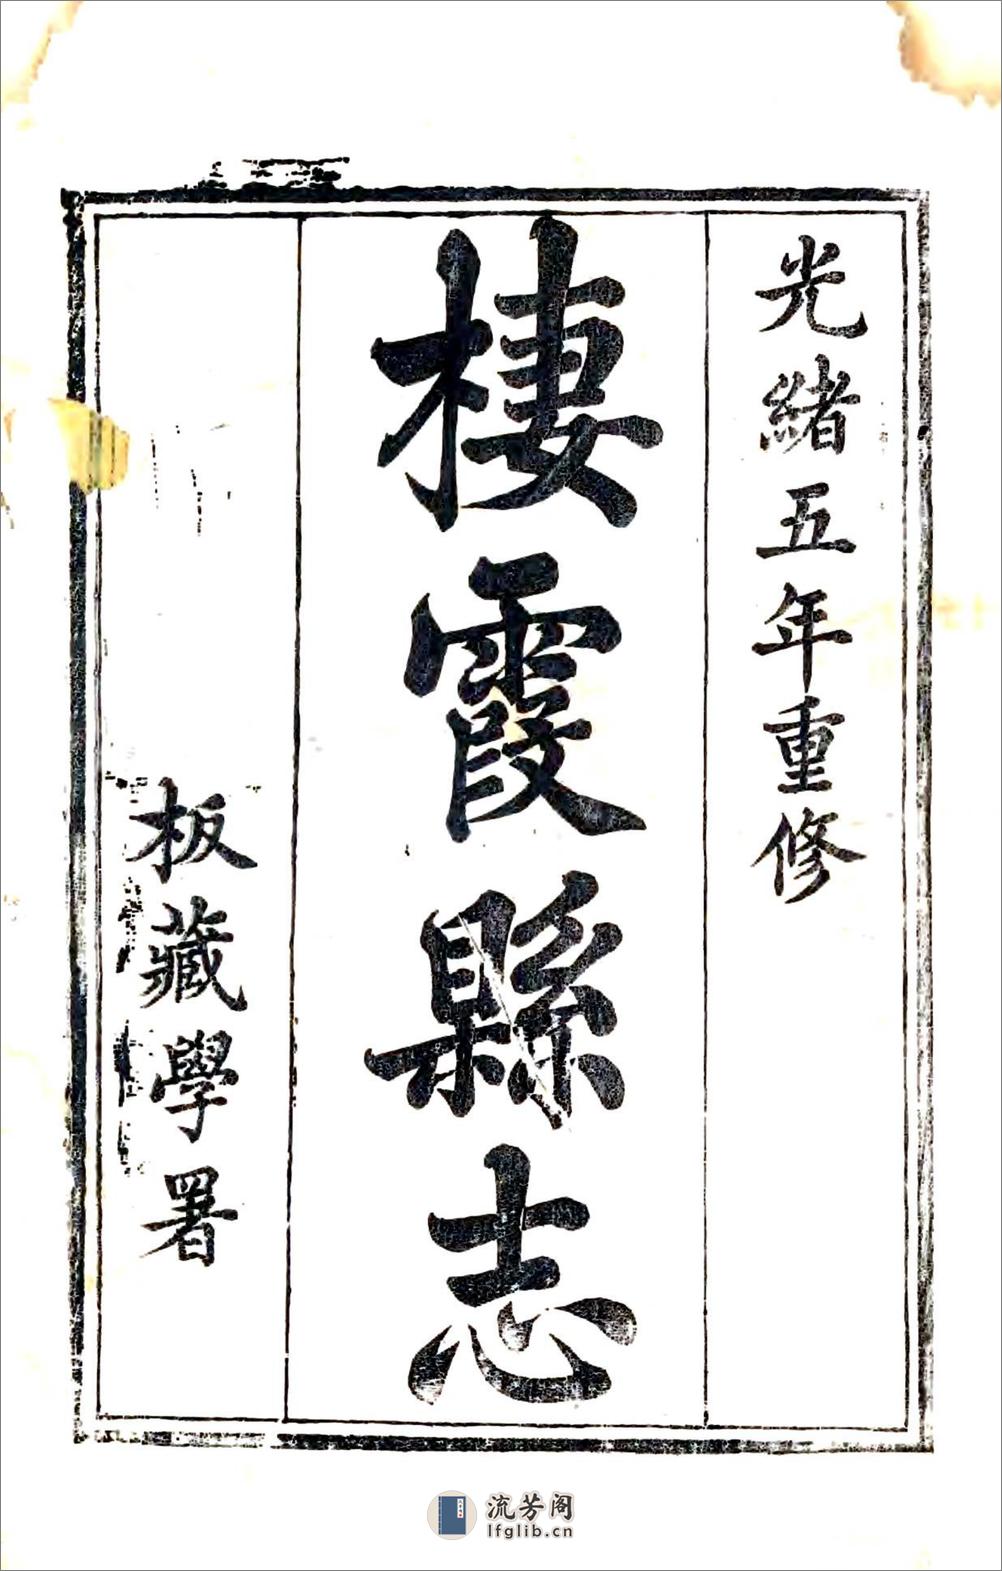 光緒五年重修
棲霞縣志
板藏學署
流芳阁
lfglib.cn